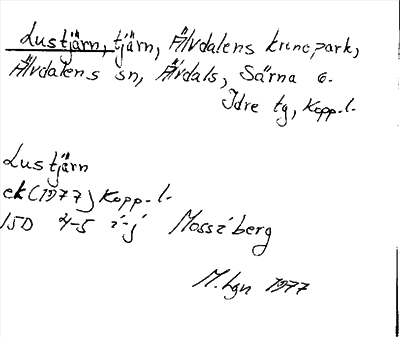 Lustjärn, tjärn, Älvdalens kronopark,
Älvdalens sn, Älvdals, Särna o.
Idre tg, Kopp.l.
Lustjärn
ek (1977) Kopp.l.
15D 4-5 i-j Mossiberg
M. Lgn 1977